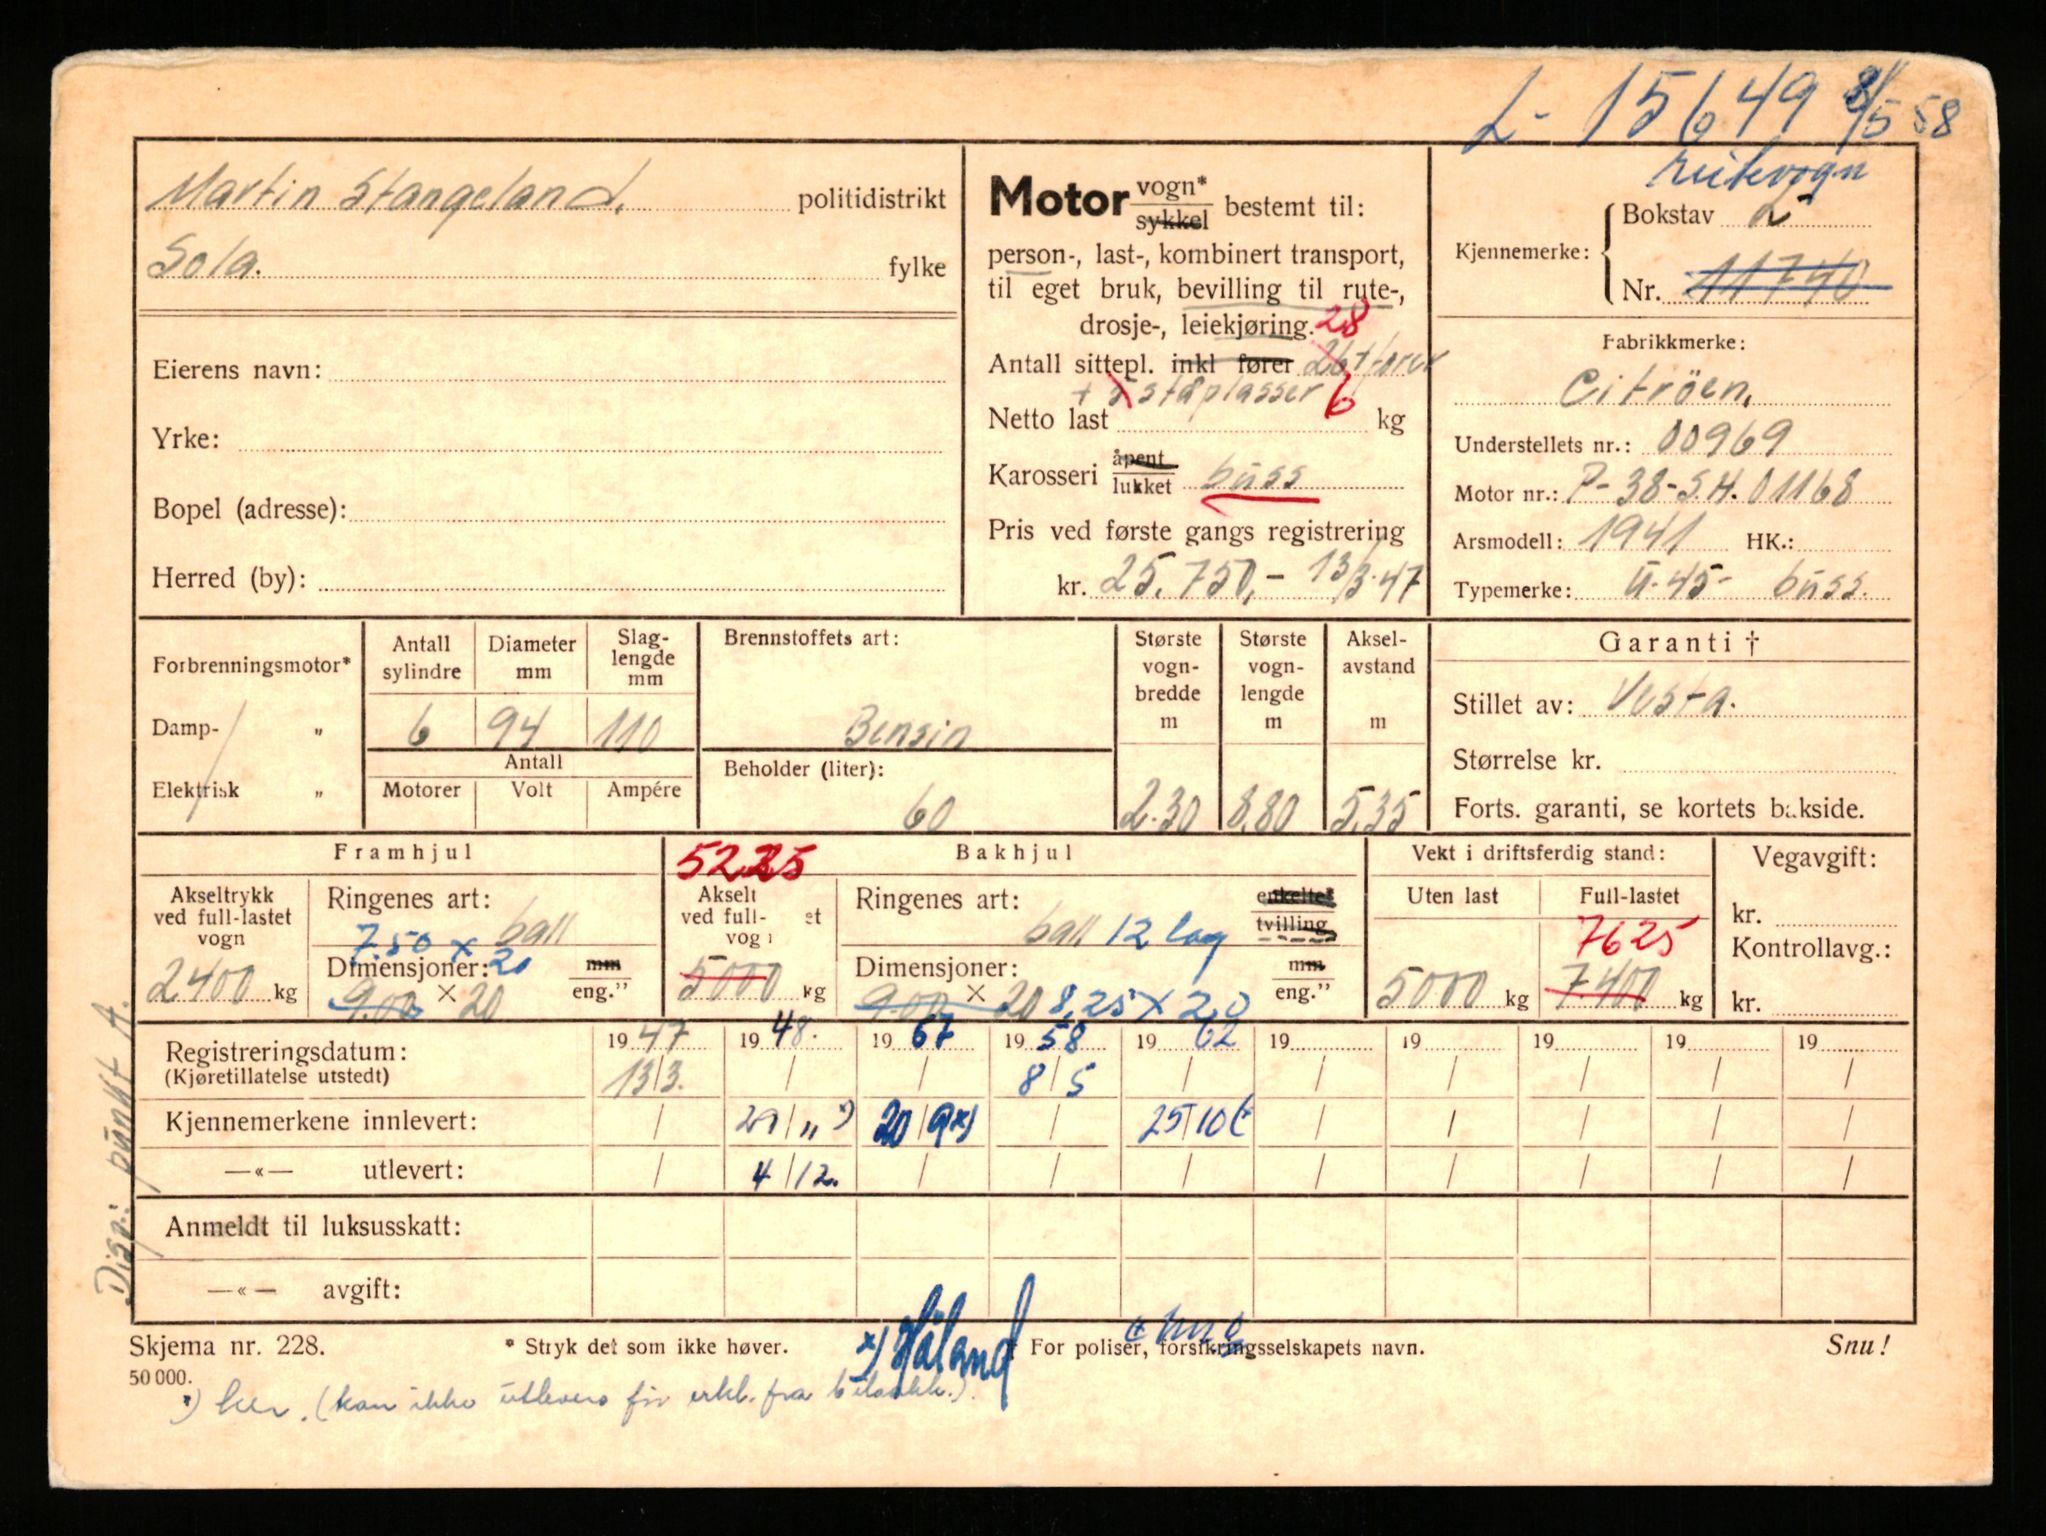 L- 15649 8/5 58
Martin Stangeland. politidistrikt
Sola. fylke
Eierens navn:
Yrke:
Bopel (adresse):
Herred (by):
Motor vogn* sykkel bestemt til:
person-, last-, kombinert transport,
til eget bruk, bevilling til rute-,
drosje-, leiekjøring. 28
Antall sittepl. inkl fører 26 + fører
+ 5 ståplasser 6
Netto last kg
Karosseri åpent lukket buss
Pris ved første gangs registrering
kr. 25.750,- 13/3.47
Kjennemerke: Bokstav L
Nr. 11740
Fabrikkmerke:
Citröen.
Understellets nr.: 00969
Motor nr.: P-38-S.H.01168
Årsmodell: 1941 HK.:
Typemerke: U-45- buss.
Forbrenningsmotor*
Damp- „
Elektrisk „
Antall sylindre
Diameter mm
Slag-lengde mm
6 94 110
Antall
Motorer Volt Ampére
Brennstoffets art:
Bensin
Beholder (liter):
60
Største vogn-bredde m
Største vogn-lengde m
Aksel-avstand m
2.30 8,80 5,35
Garanti †
Stillet av: Vesta.
Størrelse kr.
Forts. garanti, se kortets bakside.
Framhjul
Akseltrykk ved full-lastet vogn
2400 kg
Ringenes art: ball
7.50 x 20
Dimensjoner: mm eng.”
9.00 × 20
5225
Bakhjul
Akselt ved full- et vog
5000 kg
Ringenes art: enkelte* tvilling
ball 12 lag
Dimensjoner: mm eng.”
9.00 × 20 8,25 x 20
Vekt i driftsferdig stand:
Uten last Full-lastet
7625
5000 kg 7.400 kg
Vegavgift:
kr.
Kontrollavg.:
kr.
Registreringsdatum: 1947 1948. 1967 1958 1962 19 19 19 19 19
(Kjøretillatelse utstedt) 13/3. / / 8/5 / / / / / /
Kjennemerkene innlevert: / 29/11 *) 20/9 x) / 25/10 / / / / /
—«— utlevert: / 4/12. / / / / / / / /
Anmeldt til luksusskatt:
—«— avgift:
Disp.: punkt A.
Skjema nr. 228.
* Stryk det som ikke høver.
x) Håland
† For poliser, forsikringsselskapets navn.
Snu!
50 000.
*) her. (kan ikke utleveres før erkl. fra